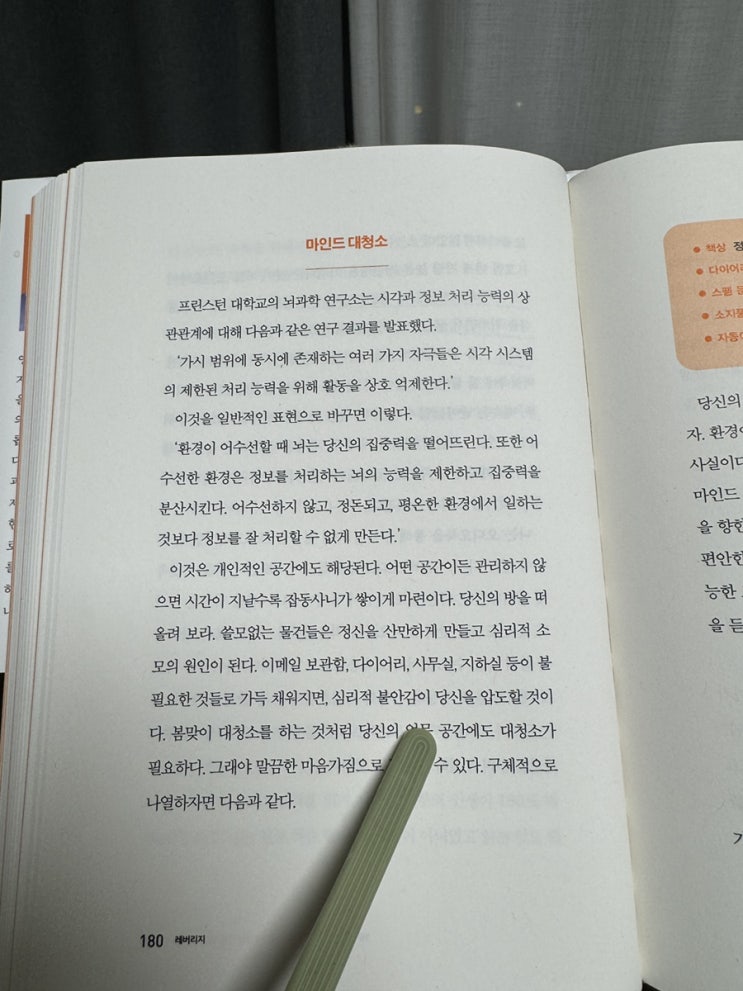 마인드 대청소
프린스턴 대학교의 뇌과학 연구소는 시각과 정보 처리 능력의 상
관관계에 대해 다음과 같은 연구 결과를 발표했다.
‘가시 범위에 동시에 존재하는 여러 가지 자극들은 시각 시스템
의 제한된 처리 능력을 위해 활동을 상호 억제한다.’
이것을 일반적인 표현으로 바꾸면 이렇다.
‘환경이 어수선할 때 뇌는 당신의 집중력을 떨어뜨린다. 또한 어
수선한 환경은 정보를 처리하는 뇌의 능력을 제한하고 집중력을
분산시킨다. 어수선하지 않고, 정돈되고, 평온한 환경에서 일하는
것보다 정보를 잘 처리할 수 없게 만든다.’
이것은 개인적인 공간에도 해당된다. 어떤 공간이든 관리하지 않
으면 시간이 지날수록 잡동사니가 쌓이게 마련이다. 당신의 방을 떠
올려 보라. 쓸모없는 물건들은 정신을 산만하게 만들고 심리적 소
모의 원인이 된다. 이메일 보관함, 다이어리, 사무실, 지하실 등이 불
필요한 것들로 가득 채워지면, 심리적 불안감이 당신을 압도할 것이
다. 봄맞이 대청소를 하는 것처럼 당신의 공간에도 대청소가
필요하다. 그래야 말끔한 마음가짐으로 수 있다. 구체적으로
나열하자면 다음과 같다.
180 레버리지
책상
다이어리
소지품
당신의
자. 환경
사실이다
마인드
을 향한
편안한
능한
을 듣